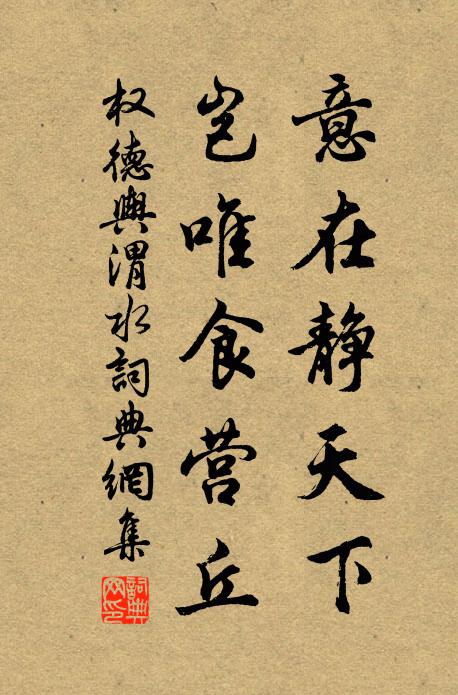 意在静天下
岂唯食营丘
权德舆渭水詞典網集
詞典网印